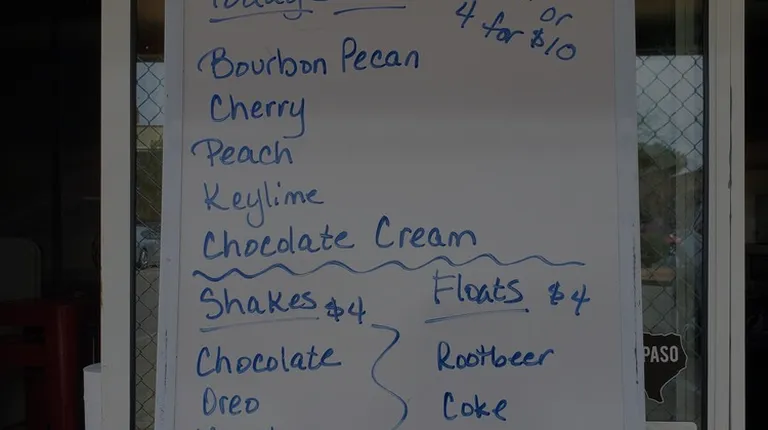 Today
or
4 for $10
Bourbon Pecan
Cherry
Peach
Keylime
Chocolate Cream
Shakes $4
Floats $4
Chocolate
Rootbeer
Oreo
Coke
PASO